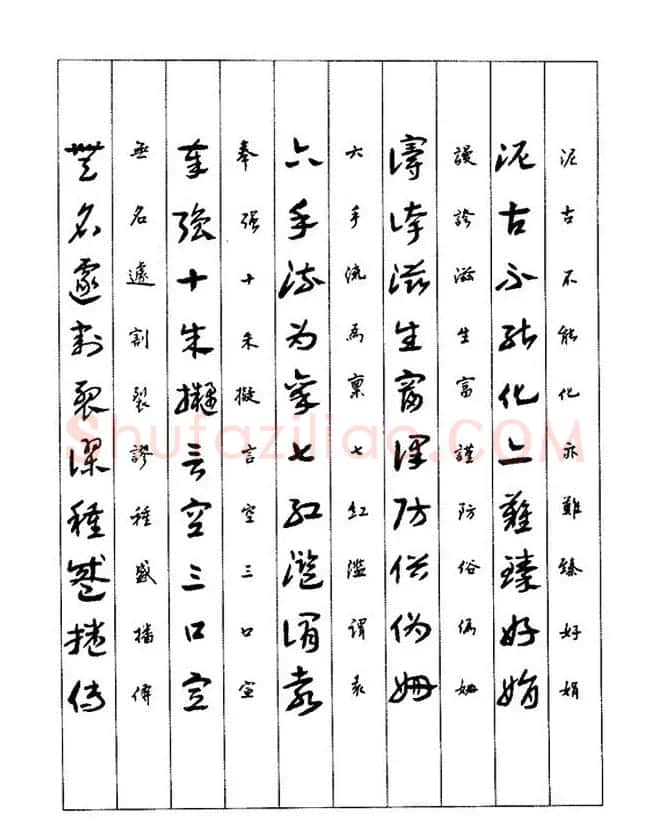 泥古不能化亦難臻好娟
泥古不能化亦難臻好娟
謾誇滋生富謹防俗偽姍
謾誇滋生富謹防俗偽姍
六手流為稟七紅濫謂袁
六手流为稟七紅濫謂袁
奉强十朱擬言空三口宣
奉強十朱擬言空三口宣
無名遽割裂謬種盛播傳
無名遽割裂謬種盛播傳
Shufaziliao.COM